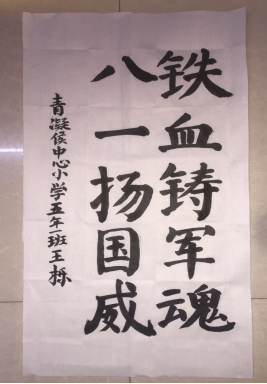 铁血铸军魂
八一扬国威
青凝侯中心小学五年一班王栎